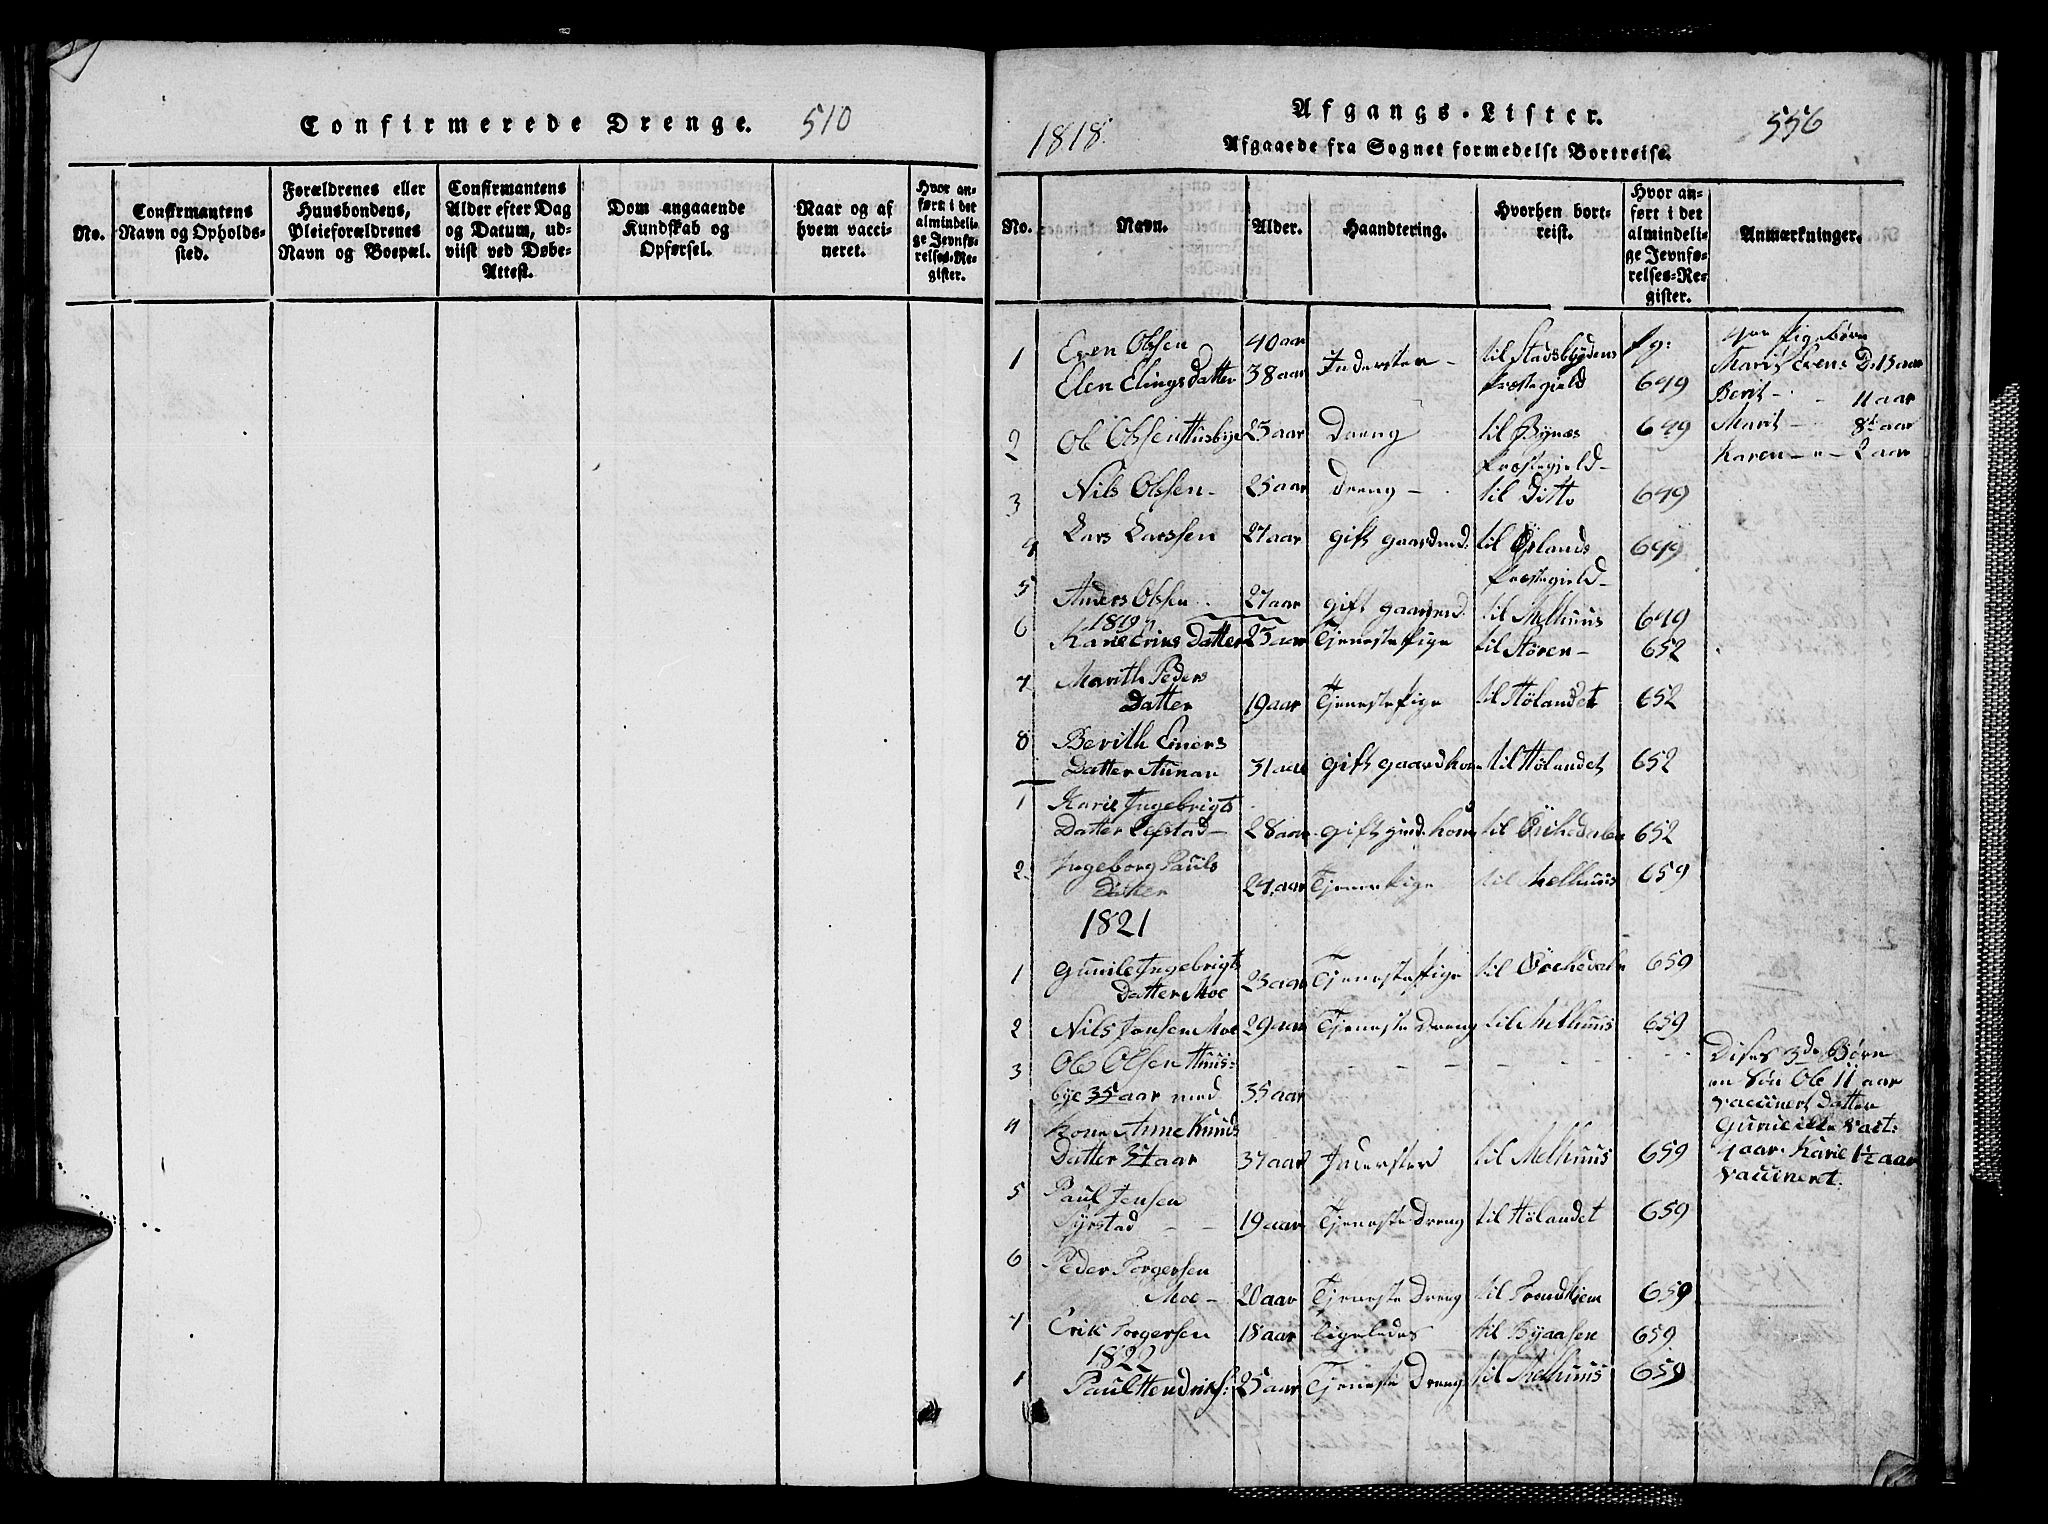 Confirmerede Drenge.
510
No.
Confirmantens
Navn og Opholds-
sted.
Forældrenes eller
Huusbondens,
Pleieforældrenes
Navn og Boepæl.
Confirmantens
Alder efter Dag
og Datum, ud-
viist ved Døbe-
Attest.
Dom angaaende
Kundskab og
Opførsel.
Naar og af
hvem vacci-
neret.
Hvor an-
ført i det
almindeli-
ge Jevnfø-
relses-Re-
gister.
1818.
Afgangs-Lister.
556
Afgaaede fra Sognet formedelst Bortreise.
No.
Navn.
Alder.
Haandtering.
Hvorhen bort-
reist.
Hvor an-
ført i det
almindeli-
ge Jevnfø-
relses-Re-
gister.
Anmærkninger.
1 Even Olsen 40 aar Inderster - til Stadsbÿdens fg:
Elen Elingsdatter 38 aar Præstegield 649
Pigebørn
Marit Evens D. 15 aar
Berit - - 11 aar
Marit - 8½ aar
Karen - " - 2 aar
2 Ole Olsen Huusbye 23 aar Dreng til Bynæs 649
Præstegield -
3 Nils Olsen - 25 aar Dreng - til Ditto 649
4 Lars Larssen 27 aar gift gaardmd: til Ørlands 649
Præstegield -
5 Anders Olsen 27 aar gift gaardmd. til Melhuus 649
1819
6 Karie Erics Datter 25 aar Tjenestepige til Støren - 652
7 Marith Peders
Datter 19 aar Tjenestepige til Hølandet 652
8 Berith Einers
Datter Aunan 31 aar gift gaardkone til Hølandet 652
1 Karie Ingebrigts
Datter Lefstad - 28 aar gift kone til Örkedalen 652
2 Ingeborg Pauls
Datter 24 aar Tjenestepige til Melhuus 659
1821
1 Gunile Ingebrigts
Datter Moe 23 aar Tjenestepige til Örkedalen 659
2 Nils Jonsen Moe 29 aar Tjeneste Dreng til Melhuus 659
3 Ole Olsen Huus-
bye 35 aar med 35 aar
4 Kone Anne Knuds
Datter 37 aar 37 aar Inderster til Melhuus 659
Disses 3de Børn
en Søn Ole 11 aar
vaccinert Datter
4 aar. Karie 1½ aar
vaccineret.
5 Paul Jensen
Syrstad - - 19 aar Tjeneste Dreng til Hølandet 659
6 Peder Torgersen
Moe - 20 aar Tjeneste Dreng til Trondhiem 659
7 Erik Torgersen 18 aar ligeledes til Byaasen 659
1822
1 Paul Hendriks: 25 aar Tjeneste Dreng til Melhuus 659